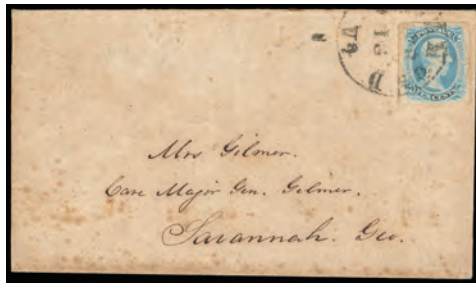 TEN CENTS
Mrs Gilmer.
Care Major Gen. Gilmer.
Savannah. Geo.